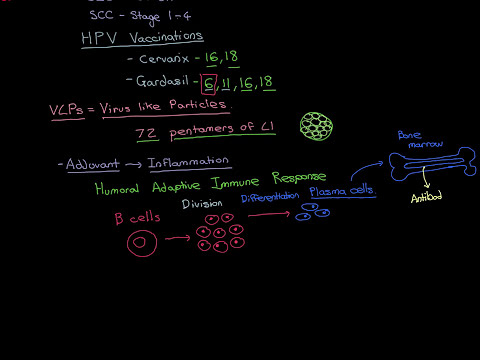 SCC - Stage 1-4
HPV Vaccinations
- Cervarix - 16,18
- Gardasil - 6,11,16,18
VLPs = Virus like Particles.
72 pentamers of L1
- Adjuvant → Inflammation
Humoral Adaptive Immune Response
B cells
Division
Differentiation
Plasma cells.
Bone
marrow
Antibod